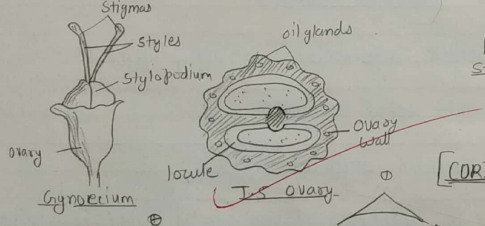 Stigmas
styles
Stylopodium
ovary
Gynoecium
oil glands
ovary
wall
locule
T.S ovary
[COR